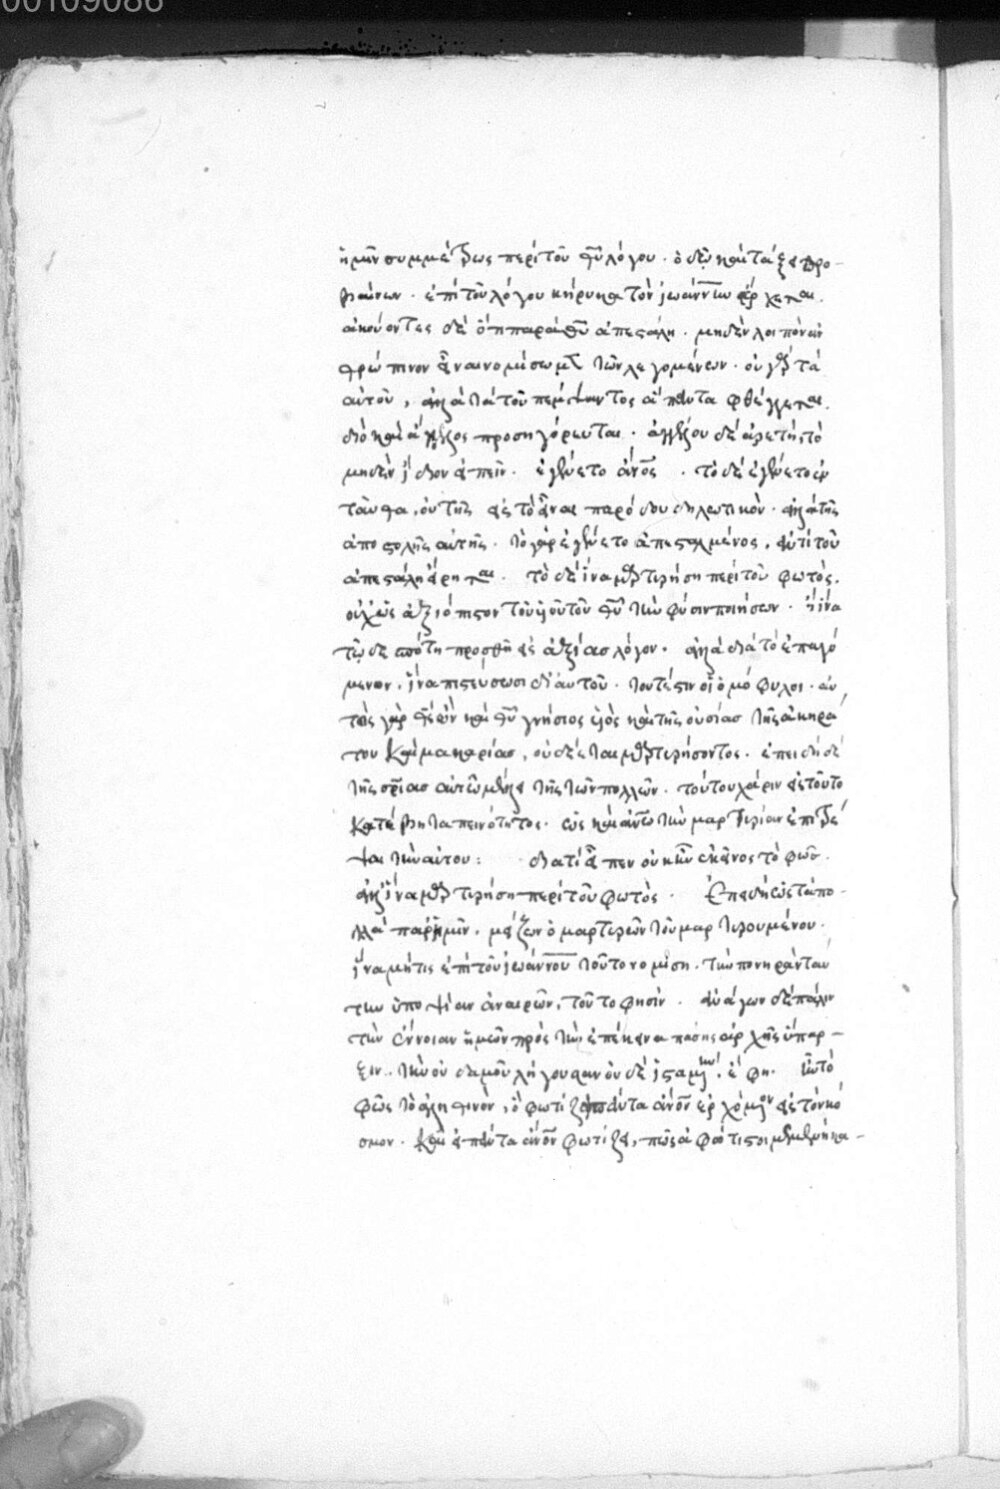 00109086
ἡμῖν συμμέτρως περὶ τοῦ θῦ λόγου. ὁδῷ καὶ τάξει προ-
βαίνων. ἐπὶ τοῦ λόγου κήρυκα τὸν ἰωάννην ἔρχεται.
ἀκούοντες δὲ ὅτι παρὰ θῦ ἀπεστάλη. μηδὲν λοιπὸν ἀν
θρώπινον εἶναι νομίσωμεν τῶν λεγομένων. οὐ γὰρ τὰ
αὐτοῦ, ἀλλὰ τὰ τοῦ πέμψαντος ἅπαντα φθέγγεται.
διὸ καὶ ἄγγελος προσηγόρευται. ἀγγέλου δὲ ἀρετὴ, τὸ
μηδὲν ἴδιον εἰπεῖν. ἐγένετο ἄνος. τὸ δὲ ἐγένετο ἐν
ταῦθα, οὐ τῆς εἰς τὸ εἶναι παρόδου δηλωτικὸν. ἀλλὰ τῆς
ἀποστολῆς αὐτῆς. τὸ γὰρ ἐγένετο ἀπεσταλμένος, ἀντὶ τοῦ
ἀπεστάλη εἴρηται. τὸ δὲ ἵνα μαρτυρήση περὶ τοῦ φωτὸς.
οὐχ ὡς ἀξιόπιστον τοῦ υἱοῦ τοῦ θῦ τὴν φύσιν ποιήσων. ἢ ἵνα
τῷδε ὁπότη προσθῆ εἰς ἀξίας λόγον. ἀλλὰ διὰ τὸ ἐπαγό
μενον. ἵνα πιστεύσωσι δι' αὐτοῦ. τουτέστιν οἱ ὁμόφυλοι. αὐ
τὸς γὰρ θς ὢν καὶ θῦ γνήσιος υἱὸς καὶ τῆς οὐσίας τῆς ἀκηρά
του καὶ μακαρίας, οὐ δεῖται μαρτυρήσοντος. ἐπειδὴ δὲ
τῆς σριας αὐτῶ μέλει τῆς τῶν πολλῶν. τούτου χάριν εἰς τοῦτο
κατέβη ταπεινότητος. ὡς καὶ ἀνω τὴν μαρτυρίαν ἐπιτρέ
ψαι τὴν αὐτου: διατί εἶπεν οὐκ ἦν ἐκεῖνος τὸ φῶς.
ἀλλ' ἵνα μαρτυρήση περὶ τοῦ φωτὸς. Ἐπειδὴ ὡς τὰ πο-
λλὰ παρ' ἡμῖν, μείζων ὁ μαρτυρῶν τοῦ μαρτυρουμένου.
ἵνα μήτις ἐπὶ τοῦ ἰωάννου τοῦτο νομίση. τὴν πονηρὰν ταύ
την ὑποψίαν ἀναιρῶν, τοῦτο φησίν. ἀνάγων δὲ πάλιν
τὴν ἔννοιαν ἡμῶν πρὸς τὴν ἐπέκεινα πάσης ἀρχῆς ὕπαρ-
ξιν. τὴν οὐδαμοῦ λήγουσαν οὐδὲ ἱσταμένην ἔφη. ἦν τὸ
φῶς τὸ ἀληθινὸν, ὃ φωτίζει πάντα ἄνον ἐρχόμενον εἰς τὸν κό
σμον. καὶ εἰ πάντα ἄνον φωτίζει, πῶς ἀφώτιστοι μεμενήκα-